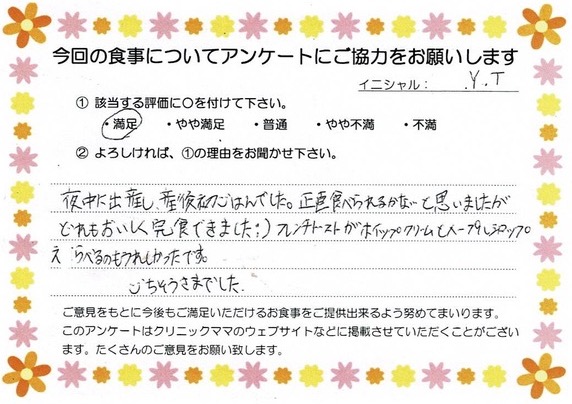 今回の食事についてアンケートにご協力をお願いします
イニシャル： Y.T
① 該当する評価に〇を付けて下さい。
・満足 ・やや満足 ・普通 ・やや不満 ・不満
② よろしければ、①の理由をお聞かせ下さい。
夜中に出産し、産後初のごはんでした。正直食べられるかな～と思いましたが
どれもおいしく完食できました:) フレンチトーストがホイップクリームとメープルシロップ
えらべるのもうれしかったです。
ごちそうさまでした。
ご意見をもとに今後もご満足いただけるお食事をご提供出来るよう努めてまいります。
このアンケートはクリニックママのウェブサイトなどに掲載させていただくことがござい
ます。たくさんのご意見をお願い致します。